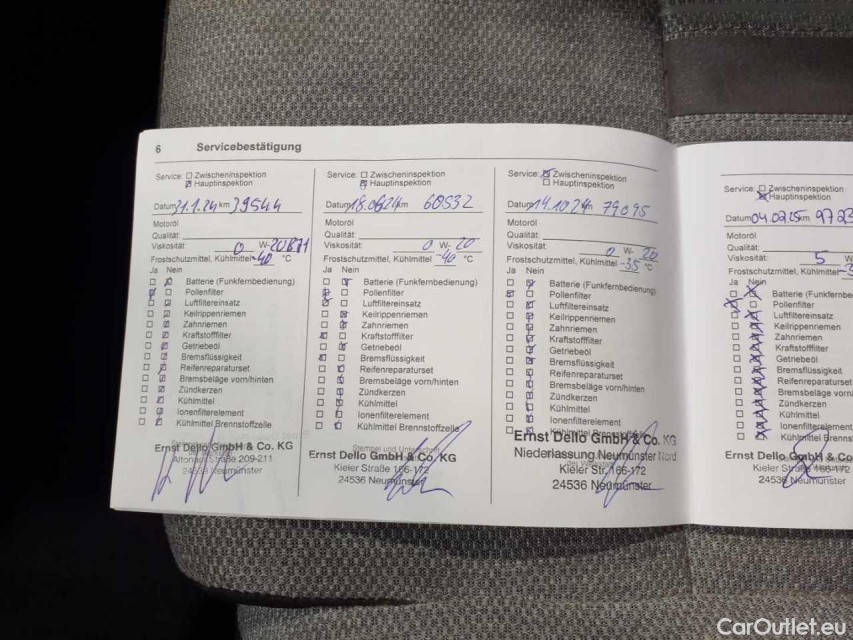 6 Servicebestätigung
Service: Zwischeninspektion
Hauptinspektion
Datum 31.1.24 km 39544
Motoröl
Qualität:
Viskosität: 0 W-20
Frostschutzmittel, Kühlmittel -40 °C
Ja Nein
Batterie (Funkfernbedienung)
Pollenfilter
Luftfiltereinsatz
Keilrippenriemen
Zahnriemen
Kraftstofffilter
Getriebeöl
Bremsflüssigkeit
Reifenreparaturset
Bremsbeläge vorn/hinten
Zündkerzen
Kühlmittel
Ionenfilterelement
Kühlmittel Brennstoffzelle
Ernst Dello GmbH & Co. KG
Altonaer Straße 209-211
24539 Neumünster
Service: Zwischeninspektion
Hauptinspektion
Datum 18.06.24 km 60532
Motoröl
Qualität:
Viskosität: 0 W-20
Frostschutzmittel, Kühlmittel -40 °C
Ja Nein
Batterie (Funkfernbedienung)
Pollenfilter
Luftfiltereinsatz
Keilrippenriemen
Zahnriemen
Kraftstofffilter
Getriebeöl
Bremsflüssigkeit
Reifenreparaturset
Bremsbeläge vorn/hinten
Zündkerzen
Kühlmittel
Ionenfilterelement
Kühlmittel Brennstoffzelle
Stempel und Unterschrift
Ernst Dello GmbH & Co. KG
Kieler Straße 166-172
24536 Neumünster
Service: Zwischeninspektion
Hauptinspektion
Datum 14.10.24 km 79095
Motoröl
Qualität:
Viskosität: 0 W-20
Frostschutzmittel, Kühlmittel -35 °C
Ja Nein
Batterie (Funkfernbedienung)
Pollenfilter
Luftfiltereinsatz
Keilrippenriemen
Zahnriemen
Kraftstofffilter
Getriebeöl
Bremsflüssigkeit
Reifenreparaturset
Bremsbeläge vorn/hinten
Zündkerzen
Kühlmittel
Ionenfilterelement
Kühlmittel Brennstoffzelle
Ernst Dello GmbH & Co. KG
Niederlassung Neumünster Nord
Kieler Str. 166-172
24536 Neumünster
Service: Zwischeninspektion
Hauptinspektion
Datum 04.02.25 km 972
Motoröl
Qualität:
Viskosität: 5 W
Frostschutzmittel, Kühlmittel
Ja Nein
Batterie (Funkfernbe
Pollenfilter
Luftfiltereinsatz
Keilrippenriemen
Zahnriemen
Kraftstofffilter
Getriebeöl
Bremsflüssigkeit
Reifenreparaturset
Bremsbeläge vorn
Zündkerzen
Kühlmittel
Ionenfilterelement
Kühlmittel Brenns
Ernst Dello GmbH & Co
Kieler Straße 166-172
24536 Neumünster
CarOutlet.eu